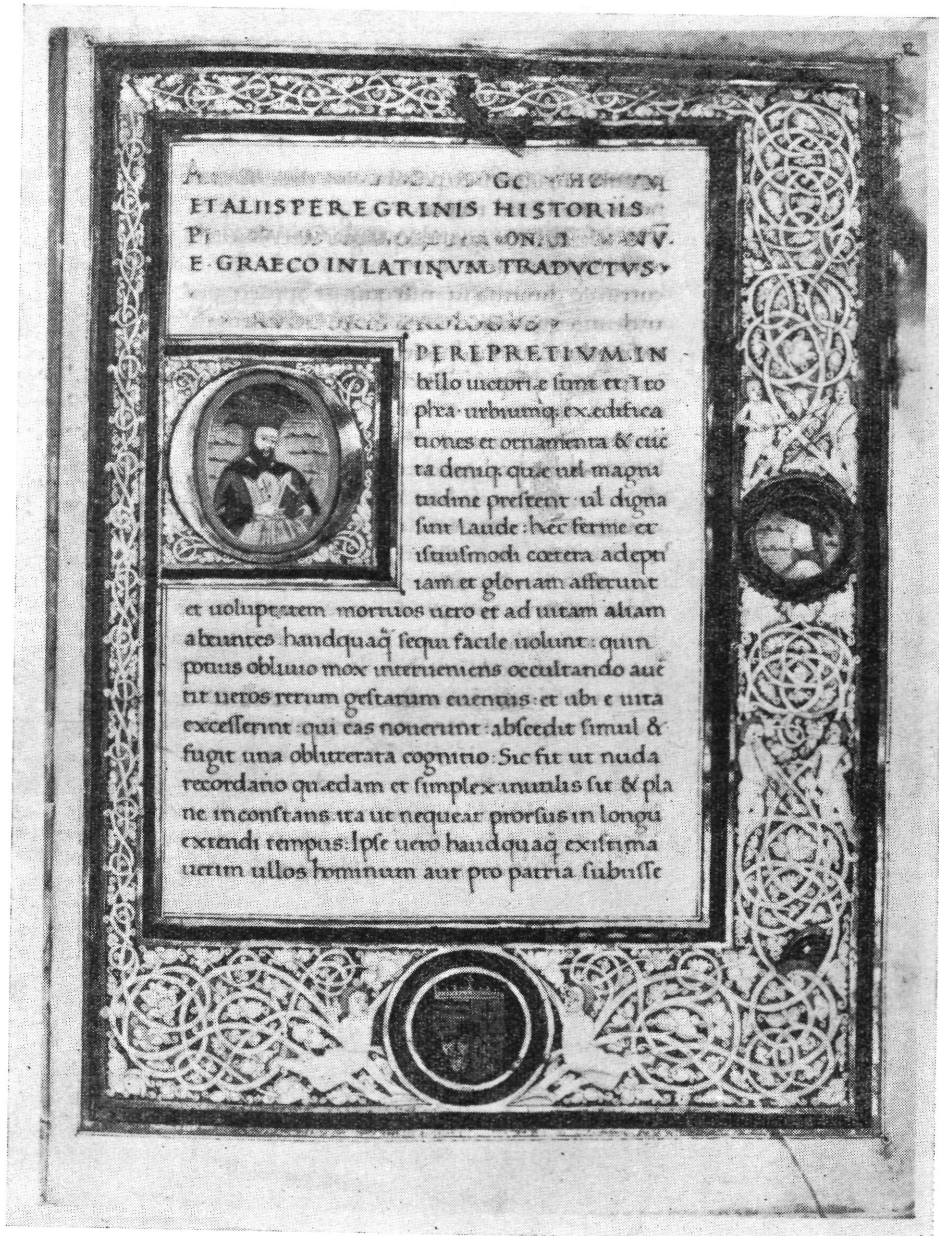 ET ALIIS PEREGRINIS HISTORIIS
E GRAECO IN LATINVM TRADVCTVS
PEREPRETIVM. IN
bello uictoriæ sunt et Tro
phea urbiumq; exædifica
tiones et ornamenta & cūc
ta deniq; quæ uel magni
tudine prestent ul digna
sunt Laude: hęc ferme et
istiusmodi cœtera adepti
iam et gloriam afferunt
et uoluptatem mortuos uero et ad uitam aliam
abeuntes haudquaq̃ sequi facile uolunt: quin
potius obliuio mox interueniens occultando auē
tit ueros rerum gestarum euentus: et ubi e uita
excesserint qui eas nouerunt: abscedit simul &
fugit una obliterata cognitio: Sic fit ut nuda
recordatio quædam et simplex inutilis sit & pla
ne inconstans ita ut nequeat prorsus in longū
extendi tempus: Ipse uero haudquaq̃ existima
uerim ullos hominum aut pro patria subiisse